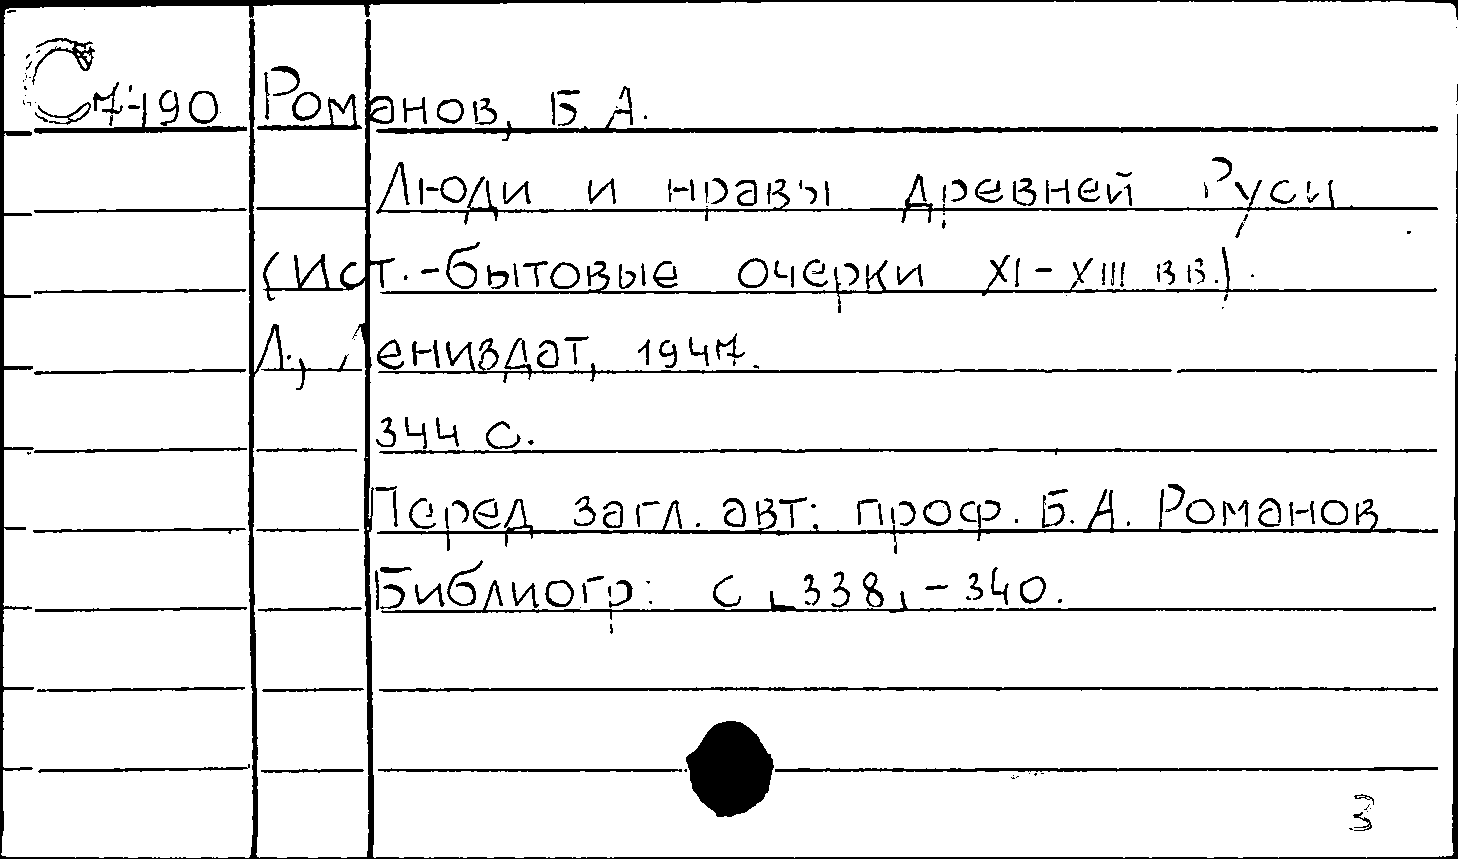 С 7-190 Романов, Б. А.
Люди и нравы древней Руси
(Ист.-бытовые очерки XI-XIII вв.).
Л., Лениздат, 1947.
344 с.
Перед загл. авт: проф. Б. А. Романов
Библиогр: с [338]-340.
3